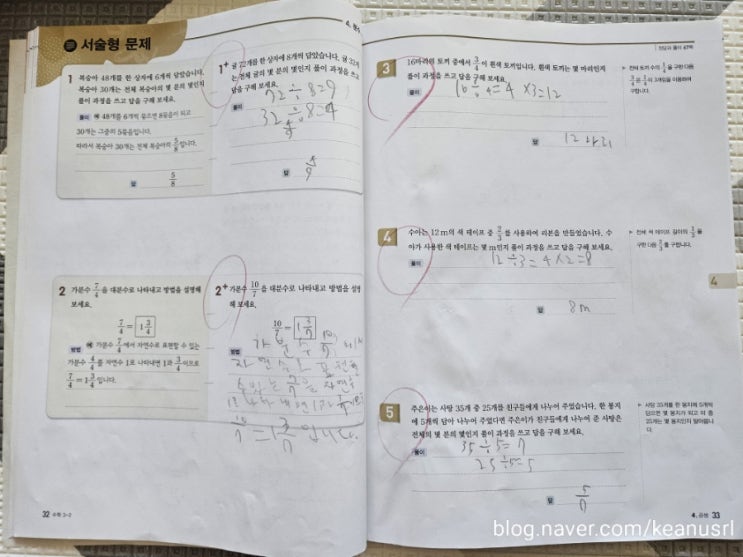 서술형 문제
4. 분수
1 복숭아 48개를 한 상자에 6개씩 담았습니다.
복숭아 30개는 전체 복숭아의 몇 분의 몇인지
풀이 과정을 쓰고 답을 구해 보세요.
풀이 예 48개를 6개씩 묶으면 8묶음이 되고
30개는 그중의 5묶음입니다.
따라서 복숭아 30개는 전체 복숭아의 5/8입니다.
답 5/8
1+ 귤 72개를 한 상자에 8개씩 담았습니다. 귤 32개
는 전체 귤의 몇 분의 몇인지 풀이 과정을 쓰고
답을 구해 보세요.
풀이 72÷8=9
32÷8=4
4/9
답 4/9
2 가분수 7/4을 대분수로 나타내고 방법을 설명해
보세요.
7/4 = 1 3/4
방법 예 가분수 7/4에서 자연수로 표현할 수 있는
가분수 4/4를 자연수 1로 나타내면 1과 3/4이므로
7/4 = 1 3/4입니다.
2+ 가분수 10/7을 대분수로 나타내고 방법을 설명
해 보세요.
10/7 = 1 3/7
방법 가분수 10/7에서
자연수로 표현
10/7 = 1 3/7입니다.
32 수학 3-2
정답과 풀이 47쪽
3 16마리의 토끼 중에서 3/4이 흰색 토끼입니다. 흰색 토끼는 몇 마리인지
풀이 과정을 쓰고 답을 구해 보세요.
풀이 16÷4=4 ×3=12
답 12마리
▶ 전체 토끼 수의 1/4을 구한 다음
3/4은 1/4이 3개임을 이용하여
구합니다.
4 수아는 12 m의 색 테이프 중 2/3를 사용하여 리본을 만들었습니다. 수
아가 사용한 색 테이프는 몇 m인지 풀이 과정을 쓰고 답을 구해 보세요.
풀이 12÷3=4×2=8
답 8m
▶ 전체 색 테이프 길이의 1/3을
구한 다음 2/3를 구합니다.
4
5 주은이는 사탕 35개 중 25개를 친구들에게 나누어 주었습니다. 한 봉지
에 5개씩 담아 나누어 주었다면 주은이가 친구들에게 나누어 준 사탕은
전체의 몇 분의 몇인지 풀이 과정을 쓰고 답을 구해 보세요.
풀이 35÷5=7
25÷5=5
답 5/7
▶ 사탕 35개를 한 봉지에 5개씩
담으면 몇 봉지가 되고 이 중
25개는 몇 봉지인지 알아봅니
다.
4. 분수 33
blog.naver.com/keanusrl